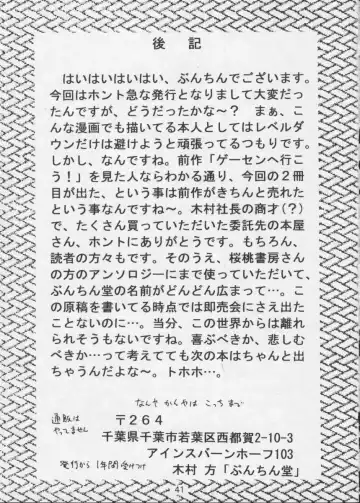 後記
はいはいはいはい、ぶんちんでございます。
今回はホント急な発行となりまして大変だっ
たんですが、どうだったかな～？　まぁ、こ
んな漫画でも描いてる本人としてはレベルダ
ウンだけは避けようと頑張ってるつもりです。
しかし、なんですね。前作「ゲーセンへ行こ
う！」を見た人ならわかる通り、今回の２冊
目が出た、という事は前作がきちんと売れた
という事なんですね～。木村社長の商才(？)
で、たくさん買っていただいた委託先の本屋
さん、ホントにありがとうです。もちろん、
読者の方々もです。そのうえ、桜桃書房さん
の方のアンソロジーにまで使っていただいて、
ぶんちん堂の名前がどんどん広まって…。こ
の原稿を書いてる時点では即売会にさえ出た
ことないのに…。当分、この世界からは離れ
られそうもないですね。喜ぶべきか、悲しむ
べきか…って考えてても次の本はちゃんと出
ちゃうんだよな～。トホホ…。
なんか かくやは こっち まで
通販は
やってません
〒２６４
千葉県千葉市若葉区西都賀2-10-3
アインスバーンホーフ103
発行から 1年間受けつけ
木村 方「ぶんちん堂」
41